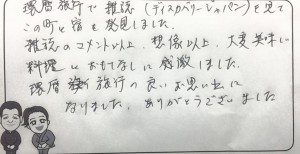 環暦旅行で雑誌(ディスカバリージャパン)を見て
この町と宿を発見しました。
雑誌のコメント以上、想像以上、大変美味しい
料理とおもてなしに感激しました。
環暦旅行の良いお思い出に
なりました。ありがとうございました